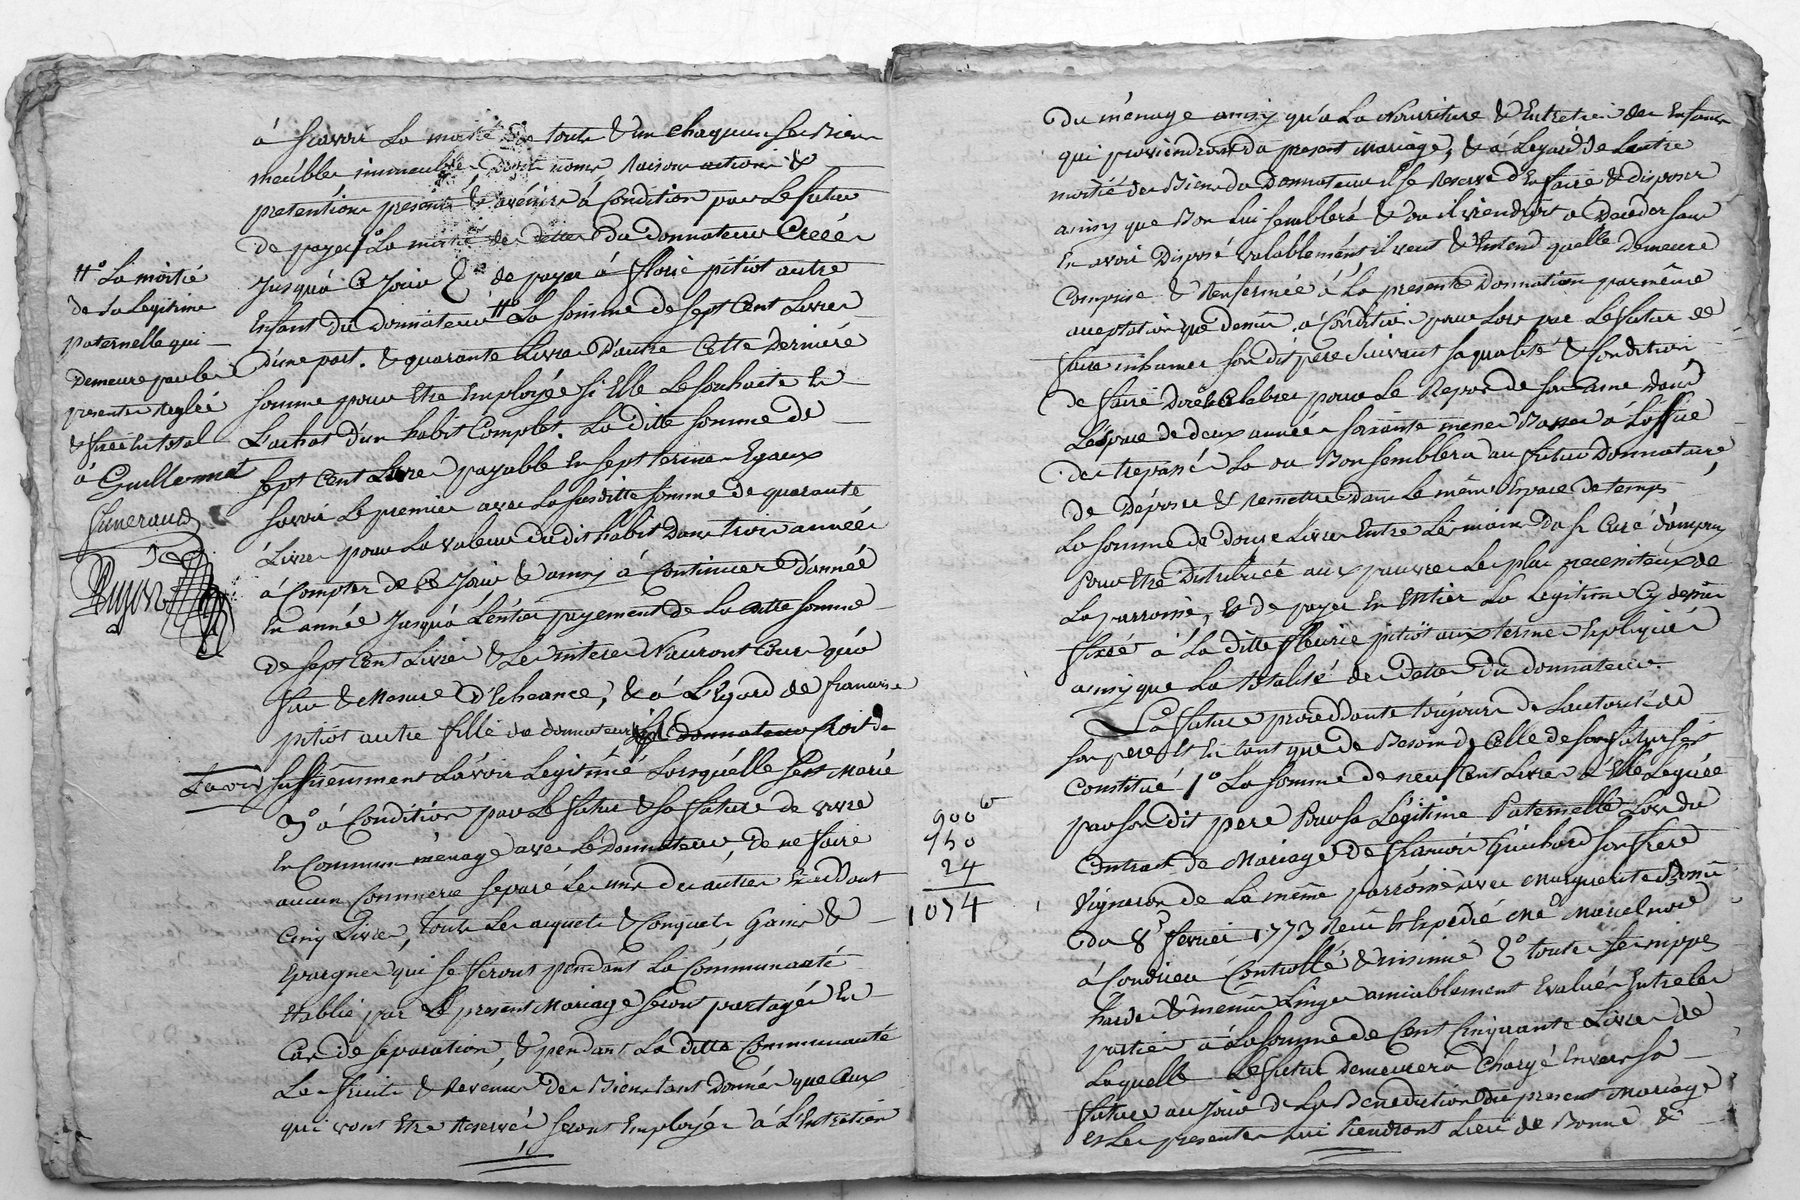 à scavoir la moitié de toute & un chaquun ses Biens
meubles immeubles droit noms Raisons actions &
pretentions presents & avénirs à Condition par Le futur
de payer 1º La moitié des dettes du donnateur Creéés
Jusquà Ce Jour 2º de payer à fleurie pitiot autre
Enfant du donnateur # La somme de sept Cent Livres
D'une part, & quarante Livres D'autre Cette Derniére
somme pour Etre Employée si Elle Le souhaite En
L'achat d'un habit Complet. La ditte somme de
sept Cent Livre payable En sept termes Egaux
savoir Le premier avec La susditte somme de quarante
Livres pour La valeur du dit habit Dans trois années
à Compter de Ce Jour & ainsy à Continuer d'année
En année Jusquà L'entier payement de La ditte somme
de sept Cent Livres & Les interes N'auront Cour qu'à
fur & Mesure D'Echeance, & à L'Egard de francoise
pitiot autre fille du donnateur donnateur Croit de
suffisemment L'avoir Legitimée Lorsquélle s'est Marié
3º à Condition par Le futur & sa future de vivre
En Commun ménage avec Le Donnateur, de ne faire
aucun Commerce separé Les uns des autres Excedant
Cinq Livres, toute Les aquets & Conquets Gains &
Epargnes qui se feront pendant La Communauté
Etablie par Le present Mariage seront partagés En
Cas de separation, & pendant La ditte Communauté
Les fruits & Revenus des Biens tant donnés que Ceux
qui vont Etre Reservé seront Employés à L'Entretien
# La moitié
de sa Legitime
paternelle qui
Demeure par les
presentes Reglée
& fixée au total
à
Guillermet
Simeraud
L'avoir
du ménage ainsy qu'à La Nourriture & Entretien des Enfants
qui proviendront du present Mariage, & à L'egard de L'autre
moitié des Biens du Donnateur il se Reserve d'En faire & disposer
ainsy que Bon Lui semblera & ou il viendroit à Deceder sans
En avoir Disposé valablement il veut & Entend quelle Demeure
Comprise & Renfermée à La presente Donnation par même
acceptation que dessus, à Condition pour Lors par Le futur de
faire inhumer son dit pere suivant sa qualité & Condition
de faire dire & Celebrer pour Le Repos de son ame dans
L'éspace de deux années soixante messes Basses à L'office
des trepassé La ou Bon semblera au futur Donnataire,
de Déposer & Remettre dans Le même Espace de temps
La somme de Douse Livres Entre Les mains du sr Curé d'ampuis
Pour Etre Distribuée aux pauvres Les plus necessiteux de
La parroisse, & de payer En Entier La Legitime Cy dessus
fixée à La ditte fleurie pitiot aux termes Expliqués
ainsy que La totalité des Dettes du donnateur.
La future procedante toujours de L'autorité de
son pere & En tant que de Besoin de Celle de son futur s'est
Constitué 1º La somme de neuf Cent Livres à Elle Leguée
par son dit pere Pour sa Légitime Paternelle Lors du
Contract de Mariage de francois Guichard son frere
Vigneron de La même parroisse avec Marguerite Bonin
du 8e fevrier 1773 Recu & Expedié Me Marcel nore
à Condrieu Controllé & insinué 2º toute ses nippes
hardes & menus Linges amiablement Evalués Entre Les
parties à La somme de Cent Cinquante Livres de
Laquelle Le futur demeurera Chargé Envers sa
future au Jour de La Benediction du present Mariage
& Les presentes Lui tiendront Lieu de Bonne &
900 tt
150
24
1074